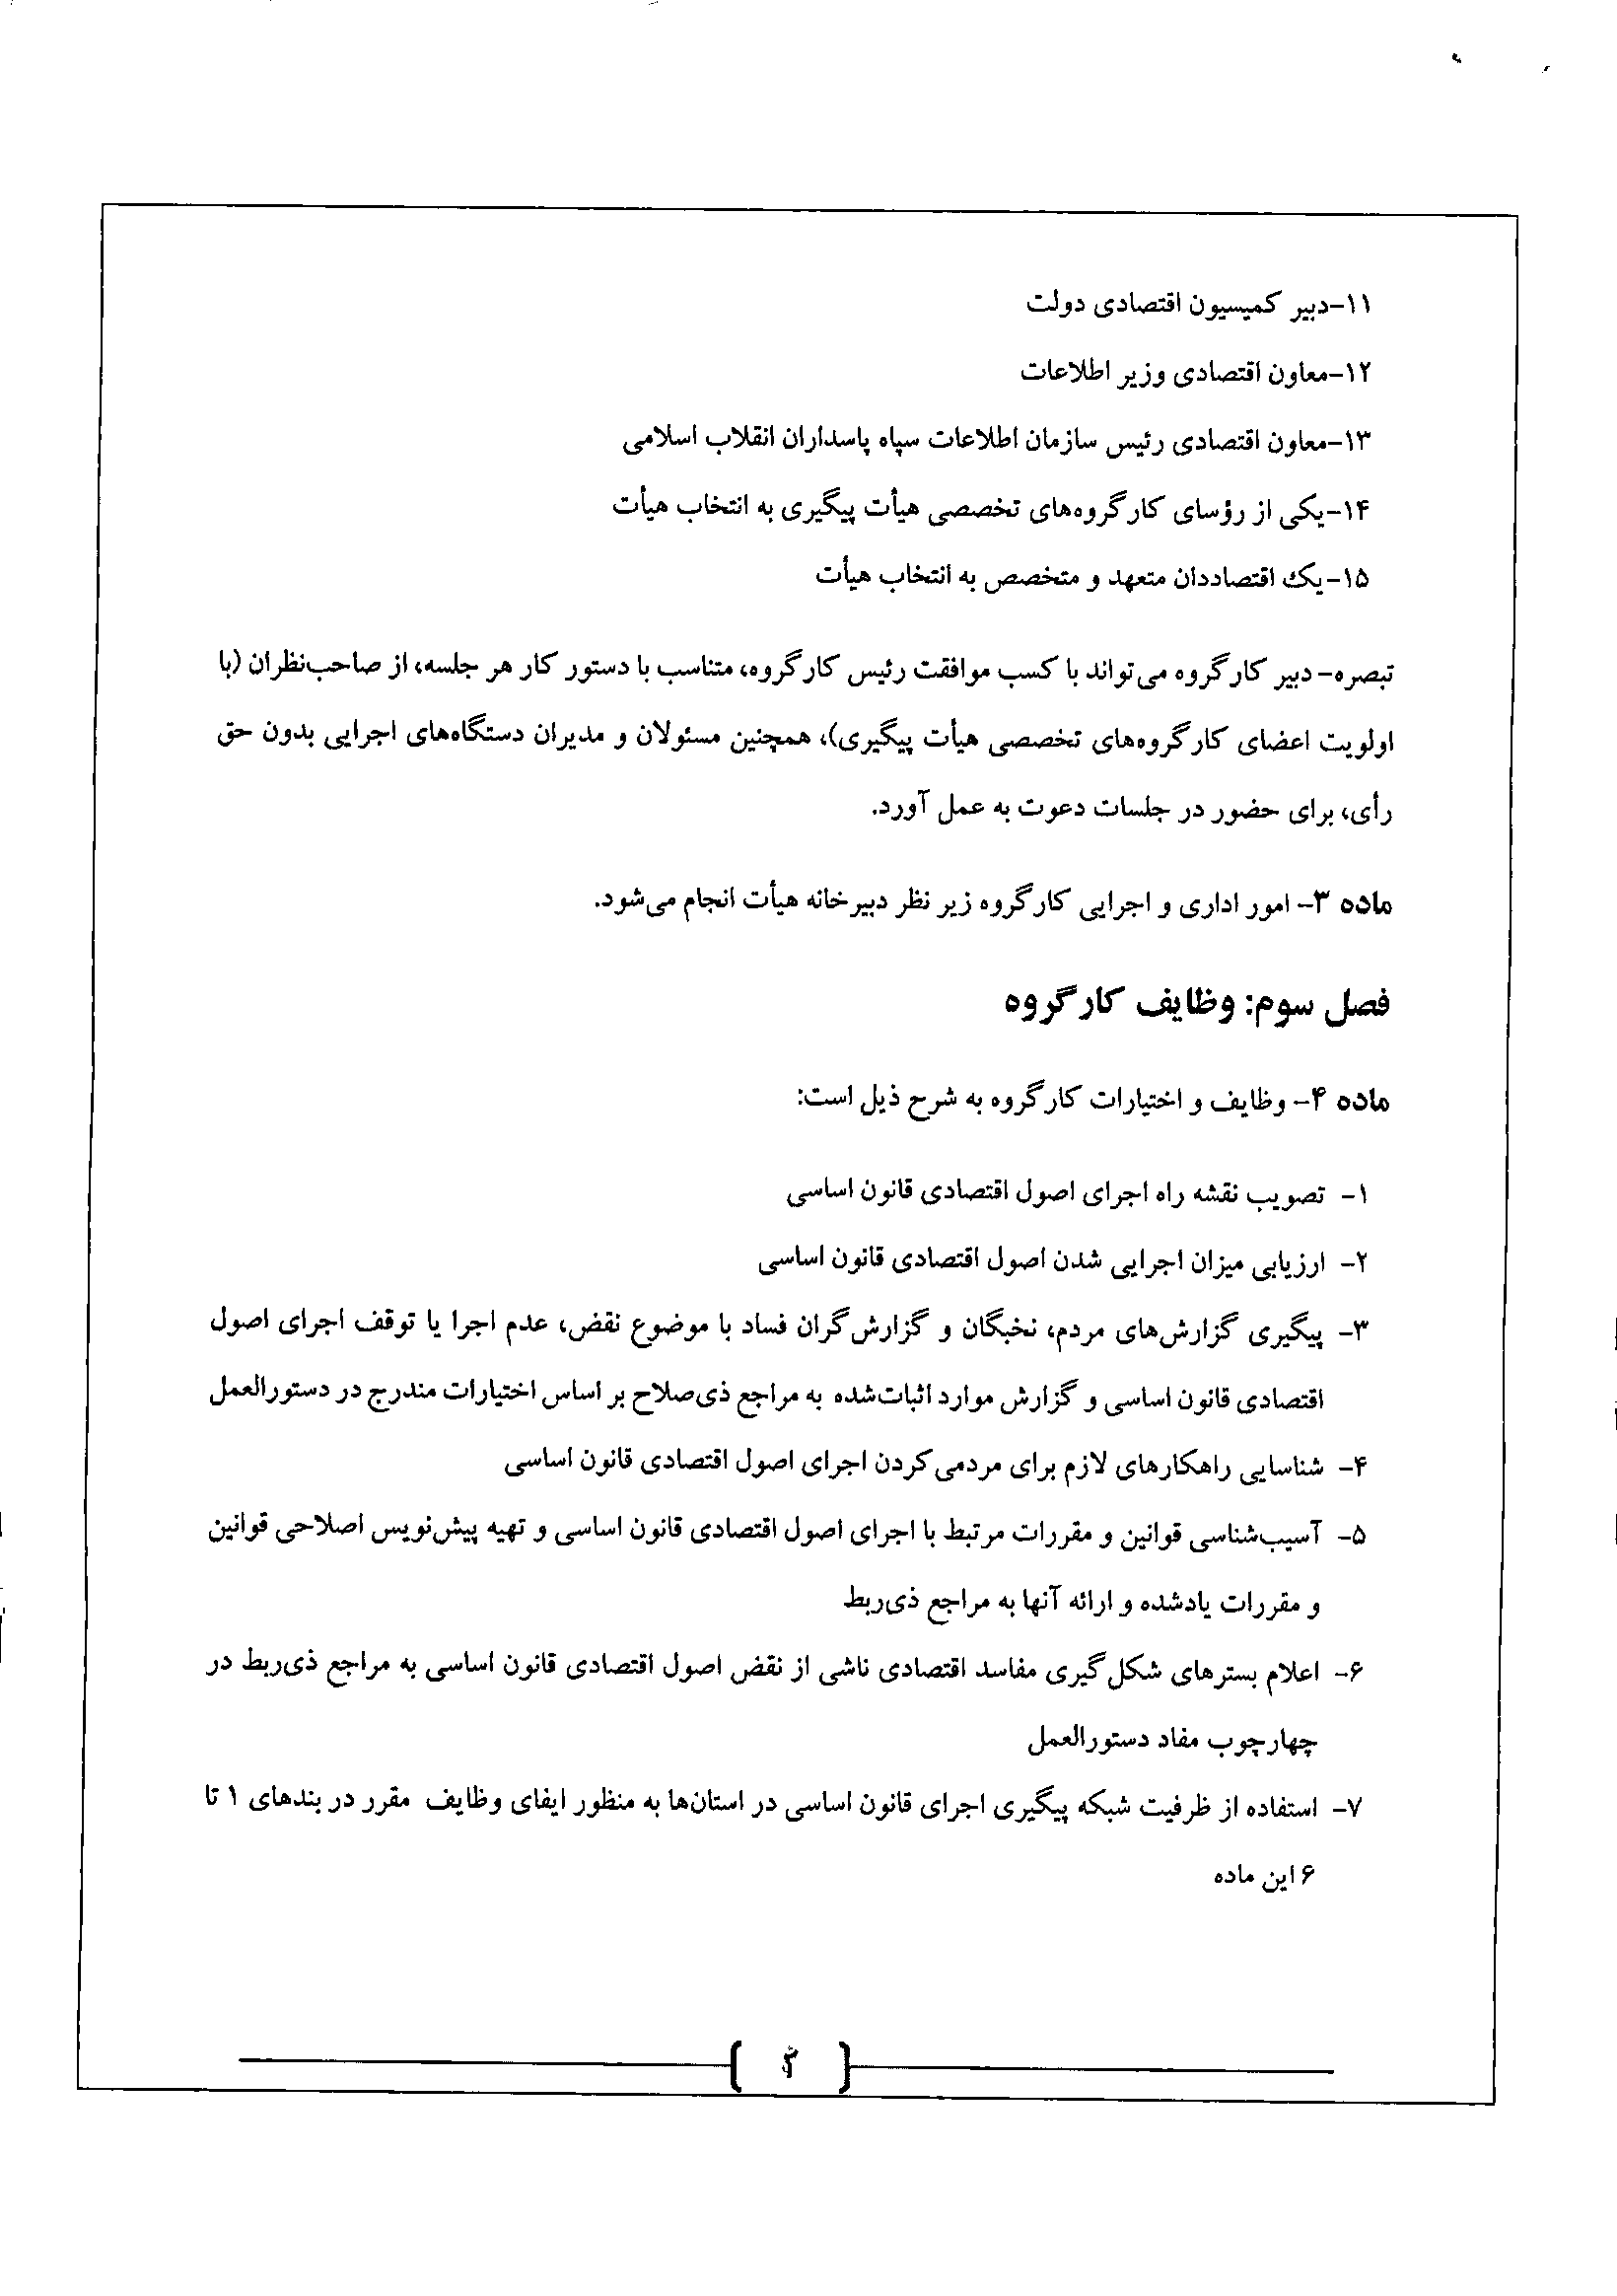 ۱۱-دبیر کمیسیون اقتصادی دولت
۱۲-معاون اقتصادی وزیر اطلاعات
۱۳-معاون اقتصادی رئیس سازمان اطلاعات سپاه پاسداران انقلاب اسلامی
۱۴-یکی از رؤسای کارگروه‌های تخصصی هیأت پیگیری به انتخاب هیأت
۱۵-یک اقتصاددان متعهد و متخصص به انتخاب هیأت
تبصره- دبیر کارگروه می‌تواند با کسب موافقت رئیس کارگروه، متناسب با دستور کار هر جلسه، از صاحب‌نظران (با
اولویت اعضای کارگروه‌های تخصصی هیأت پیگیری)، همچنین مسئولان و مدیران دستگاه‌های اجرایی بدون حق
رأی، برای حضور در جلسات دعوت به عمل آورد.
ماده ۳- امور اداری و اجرایی کارگروه زیر نظر دبیرخانه هیأت انجام می‌شود.
فصل سوم: وظایف کارگروه
ماده ۴- وظایف و اختیارات کارگروه به شرح ذیل است:
۱- تصویب نقشه راه اجرای اصول اقتصادی قانون اساسی
۲- ارزیابی میزان اجرایی شدن اصول اقتصادی قانون اساسی
۳- پیگیری گزارش‌های مردم، نخبگان و گزارش‌گران فساد با موضوع نقض، عدم اجرا یا توقف اجرای اصول
اقتصادی قانون اساسی و گزارش موارد اثبات‌شده به مراجع ذی‌صلاح بر اساس اختیارات مندرج در دستورالعمل
۴- شناسایی راهکارهای لازم برای مردمی‌کردن اجرای اصول اقتصادی قانون اساسی
۵- آسیب‌شناسی قوانین و مقررات مرتبط با اجرای اصول اقتصادی قانون اساسی و تهیه پیش‌نویس اصلاحی قوانین
و مقررات یادشده و ارائه آنها به مراجع ذی‌ربط
۶- اعلام بسترهای شکل‌گیری مفاسد اقتصادی ناشی از نقض اصول اقتصادی قانون اساسی به مراجع ذی‌ربط در
چهارچوب مفاد دستورالعمل
۷- استفاده از ظرفیت شبکه پیگیری اجرای قانون اساسی در استان‌ها به منظور ایفای وظایف مقرر در بندهای ۱ تا
۶ این ماده